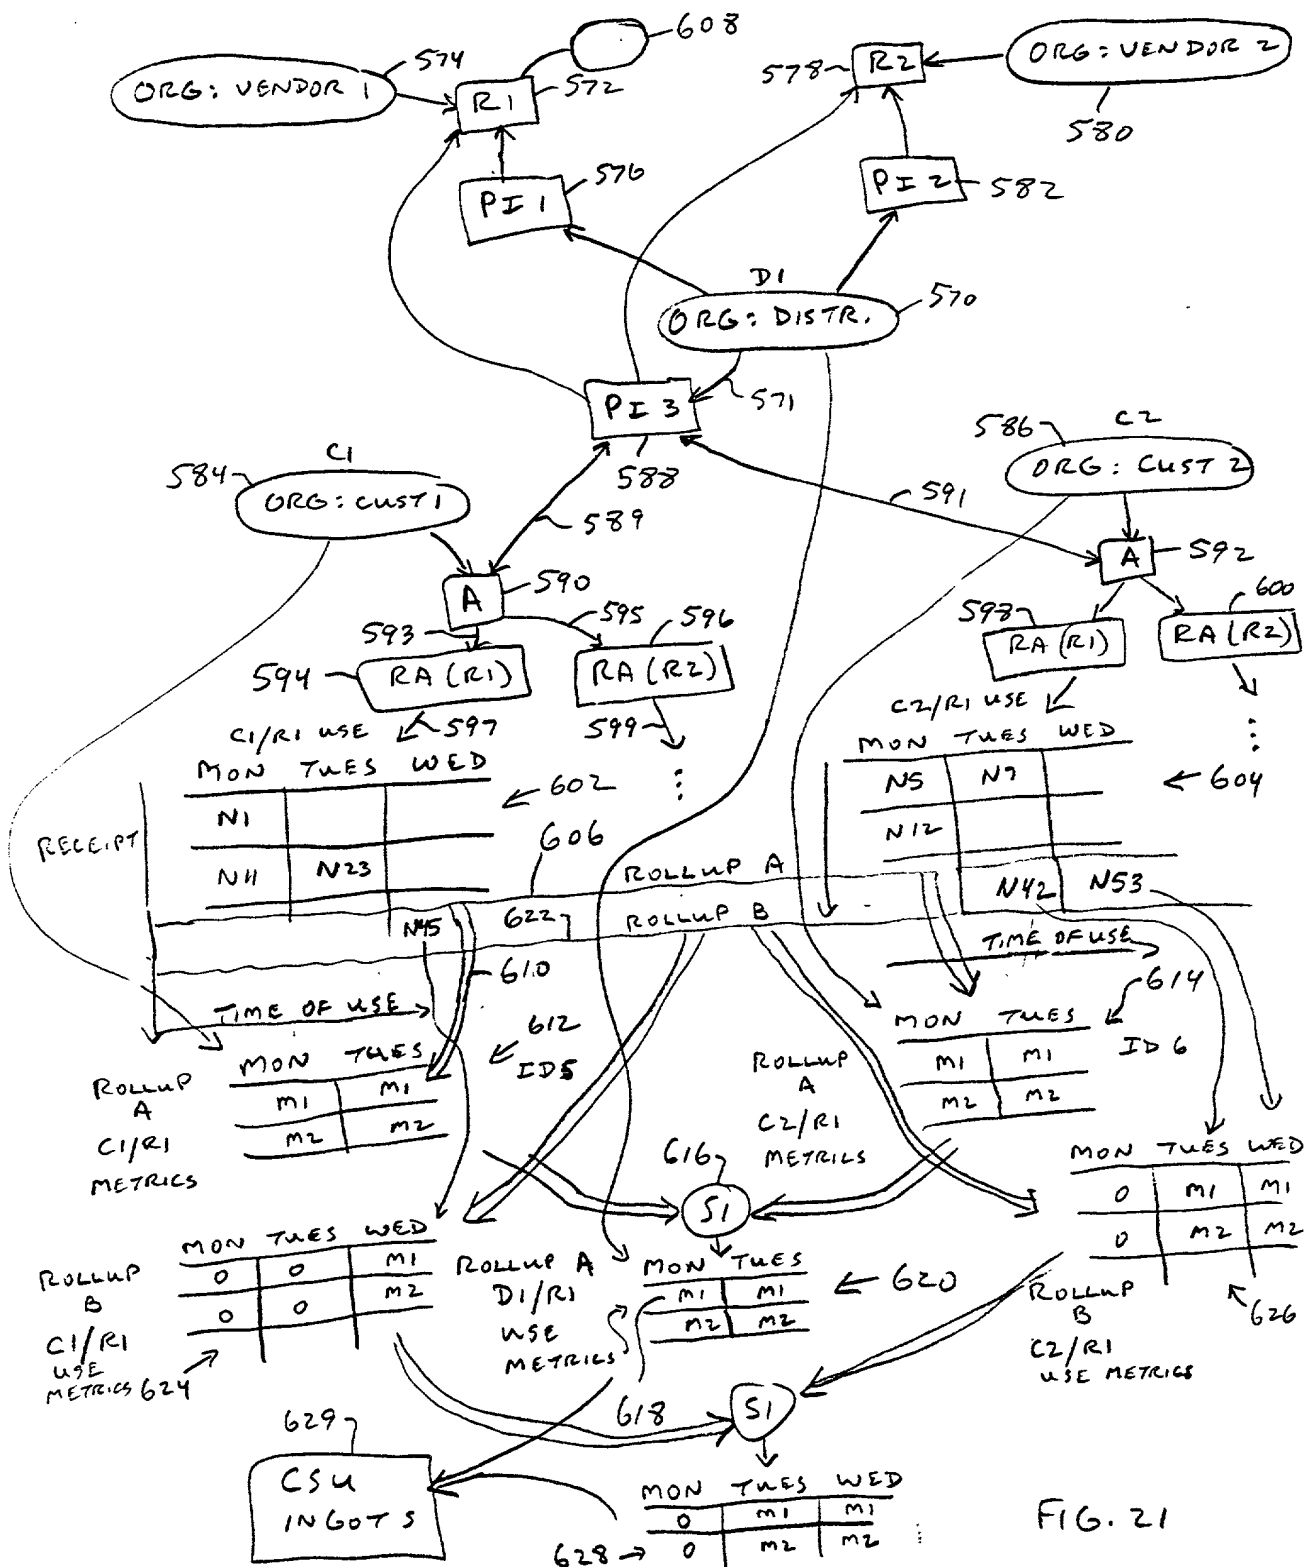 608
574
ORG: VENDOR 1
R1
572
578
R2
ORG: VENDOR 2
580
576
PI 1
PI 2
582
D1
ORG: DISTR.
570
571
PI 3
588
C1
584
ORG: CUST 1
589
591
C2
586
ORG: CUST 2
A
590
A
592
593
595
596
594
RA (R1)
RA (R2)
598
RA (R1)
600
RA (R2)
597
599
C1/R1 USE
MON TUES WED
N1
N11 N23
N45
602
606
RECEIPT
C2/R1 USE
MON TUES WED
N5 N9
N12
N42 N53
604
ROLLUP A
622
ROLLUP B
610
TIME OF USE
TIME OF USE
612
ID5
614
ID6
ROLLUP
A
C1/R1
METRICS
MON TUES
M1 M1
M2 M2
ROLLUP
A
C2/R1
METRICS
MON TUES
M1 M1
M2 M2
616
S1
MON TUES WED
0 M1 M1
0 M2 M2
626
ROLLUP
B
C2/R1
USE METRICS
ROLLUP
B
C1/R1
USE
METRICS 624
MON TUES WED
0 0 M1
0 0 M2
ROLLUP A
D1/R1
USE
METRICS
MON TUES
M1 M1
M2 M2
620
618
S1
629
CSU
INGOTS
MON TUES WED
0 M1 M1
0 M2 M2
628
FIG. 21